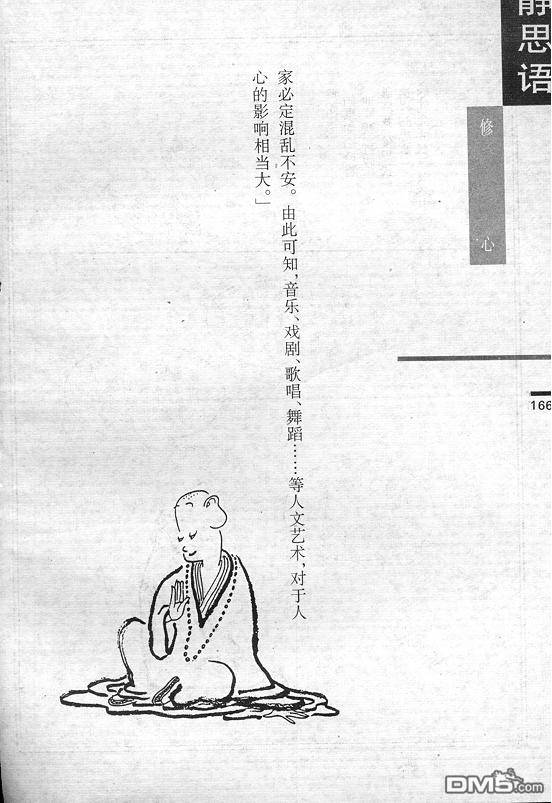 静思语
修心
166
家必定混乱不安。由此可知，音乐、戏剧、歌唱、舞蹈……等人文艺术，对于人
心的影响相当大。」
DM5.com